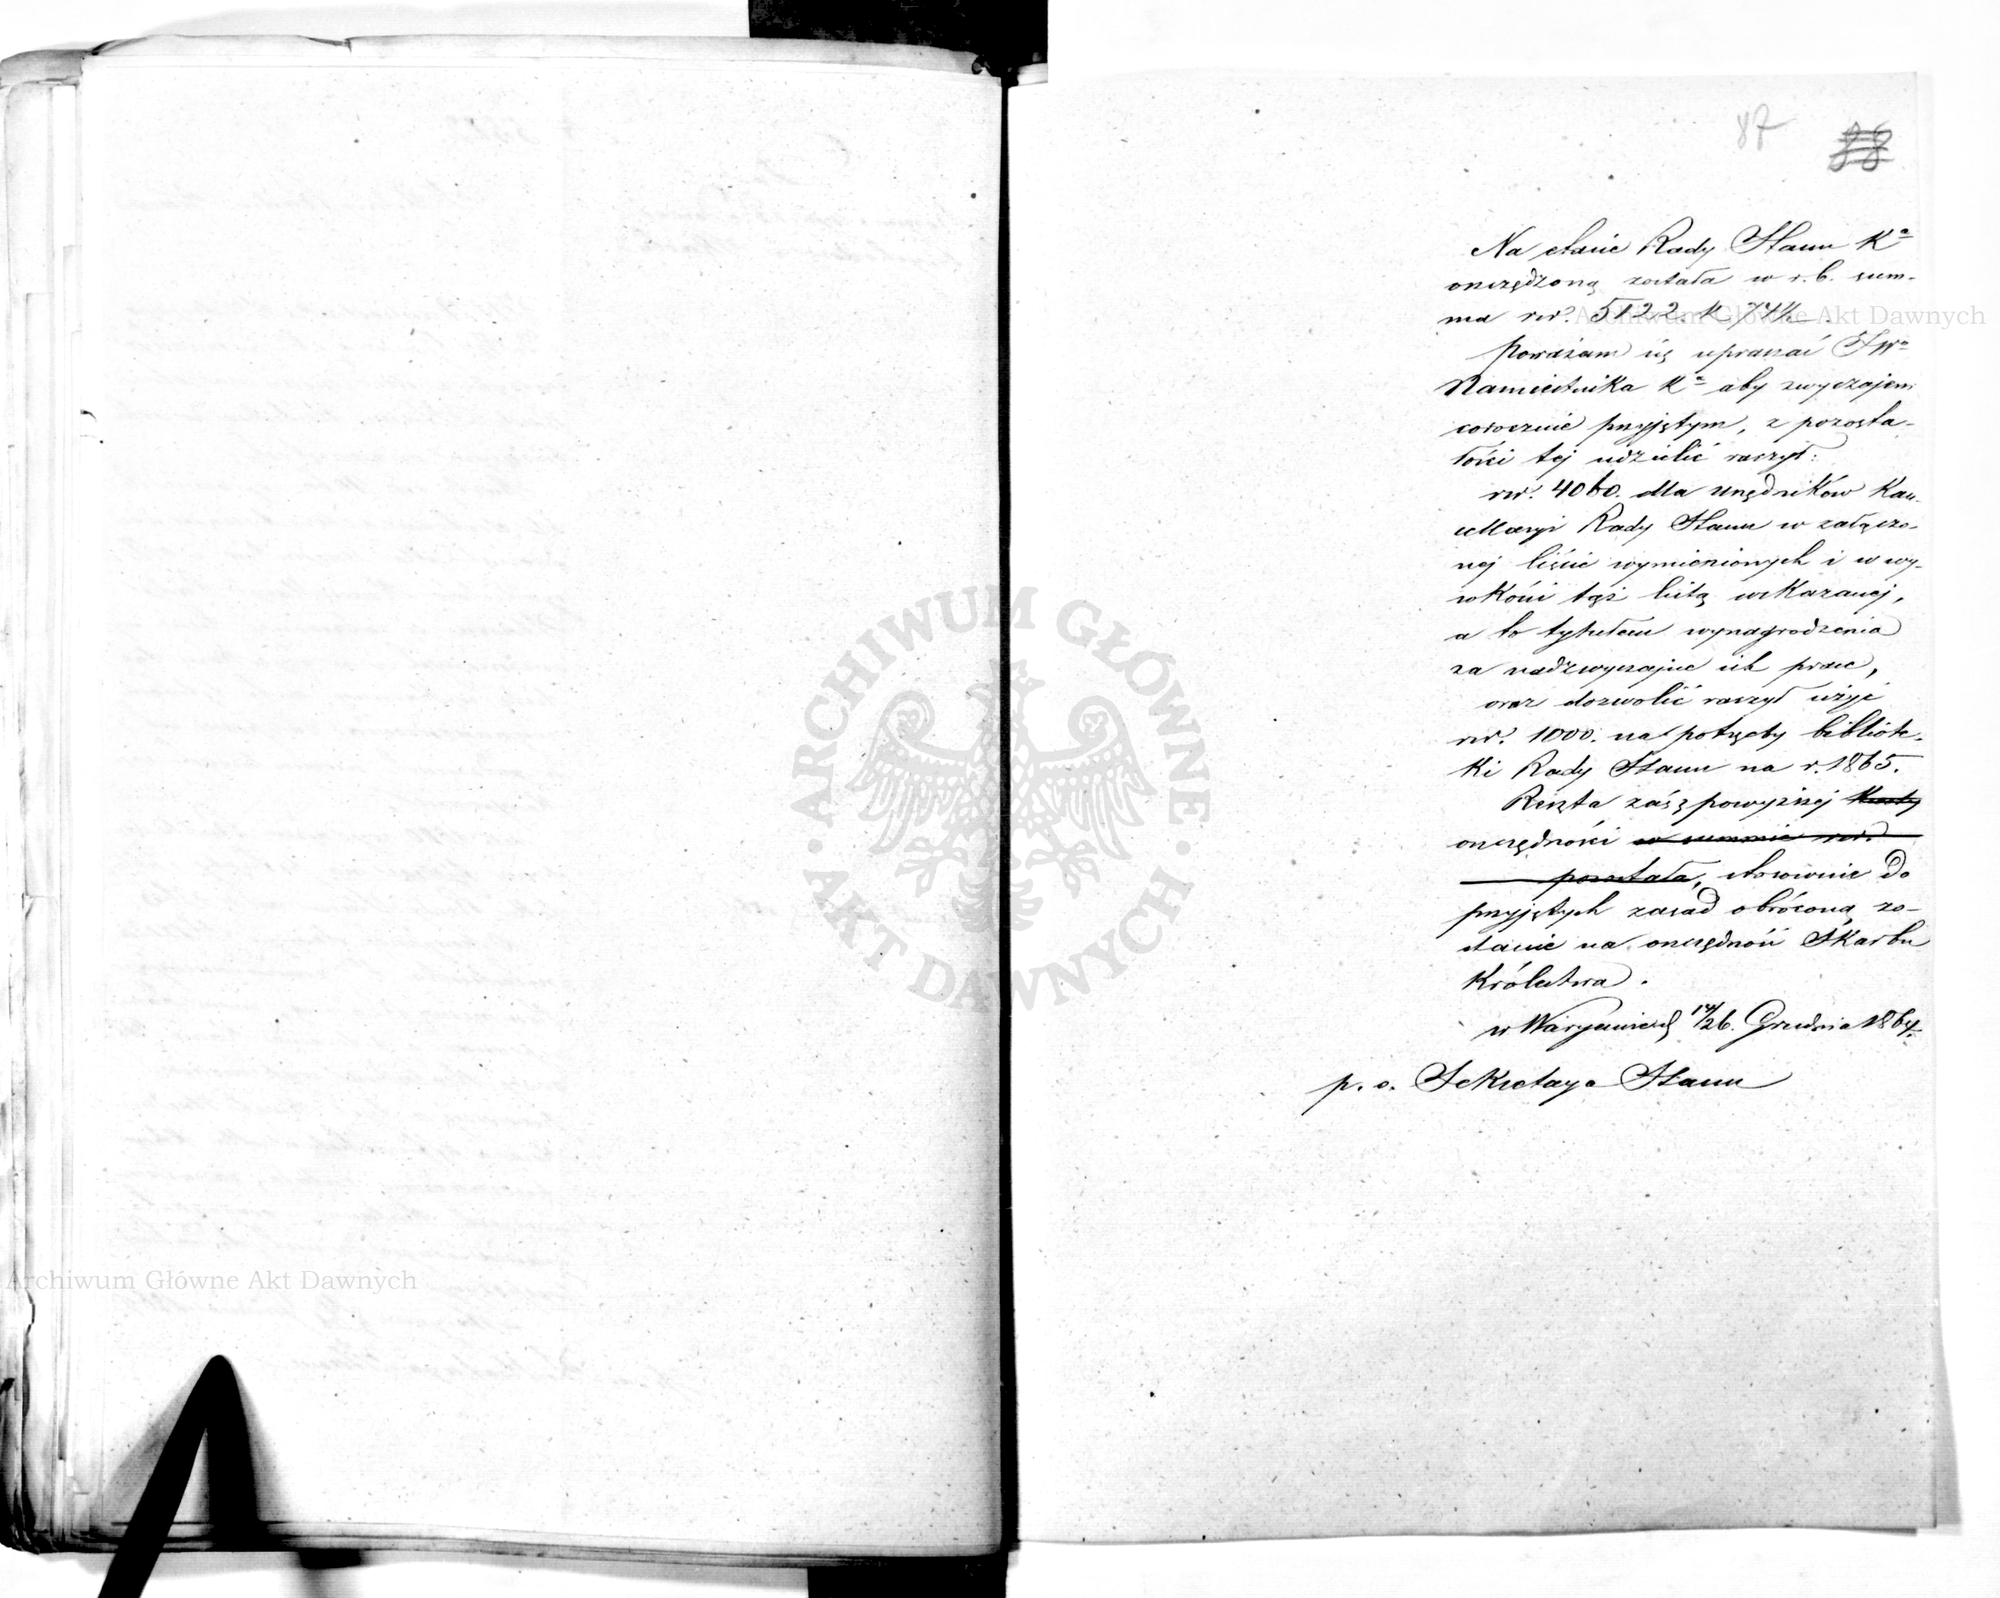 87 88
Na etacie Rady Stanu K<sup>a</sup>
oszczędzoną została w r. b. sum-
ma rsr. 5122. k. 74½.
Poważam się upraszać JW<sup>o</sup>
Namiestnika K<sup>a</sup> aby zwyczajem
corocznie przyjętym, z pozosta-
łości tej udzielić raczył:
rsr. 4060. dla urzędników Kan-
cellaryi Rady Stanu w załączo-
nej liście wymienionych i w wy-
sokości tąż listą wskazanej,
a to tytułem wynagrodzenia
za nadzwyczajne ich prace,
oraz dozwolić raczył użyć
rsr. 1000. na potrzeby bibliote-
ki Rady Stanu na r. 1865.
Reszta zaś z powyższej
oszczędności w summie rsr.
pozostała, stosownie do
przyjętych zasad obróconą zo-
stanie na oszczędność Skarbu
Królestwa.
w Warszawie d. 14/26. Grudnia 1864.
p. o. Sekretarza Stanu
Archiwum Główne Akt Dawnych
Archiwum Główne Akt Dawnych
ARCHIWUM GŁÓWNE
AKT DAWNYCH